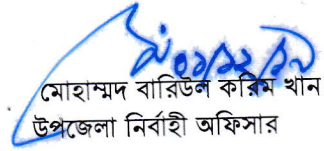 মোহাম্মদ বারিউল করিম খান
উপজেলা নির্বাহী অফিসার